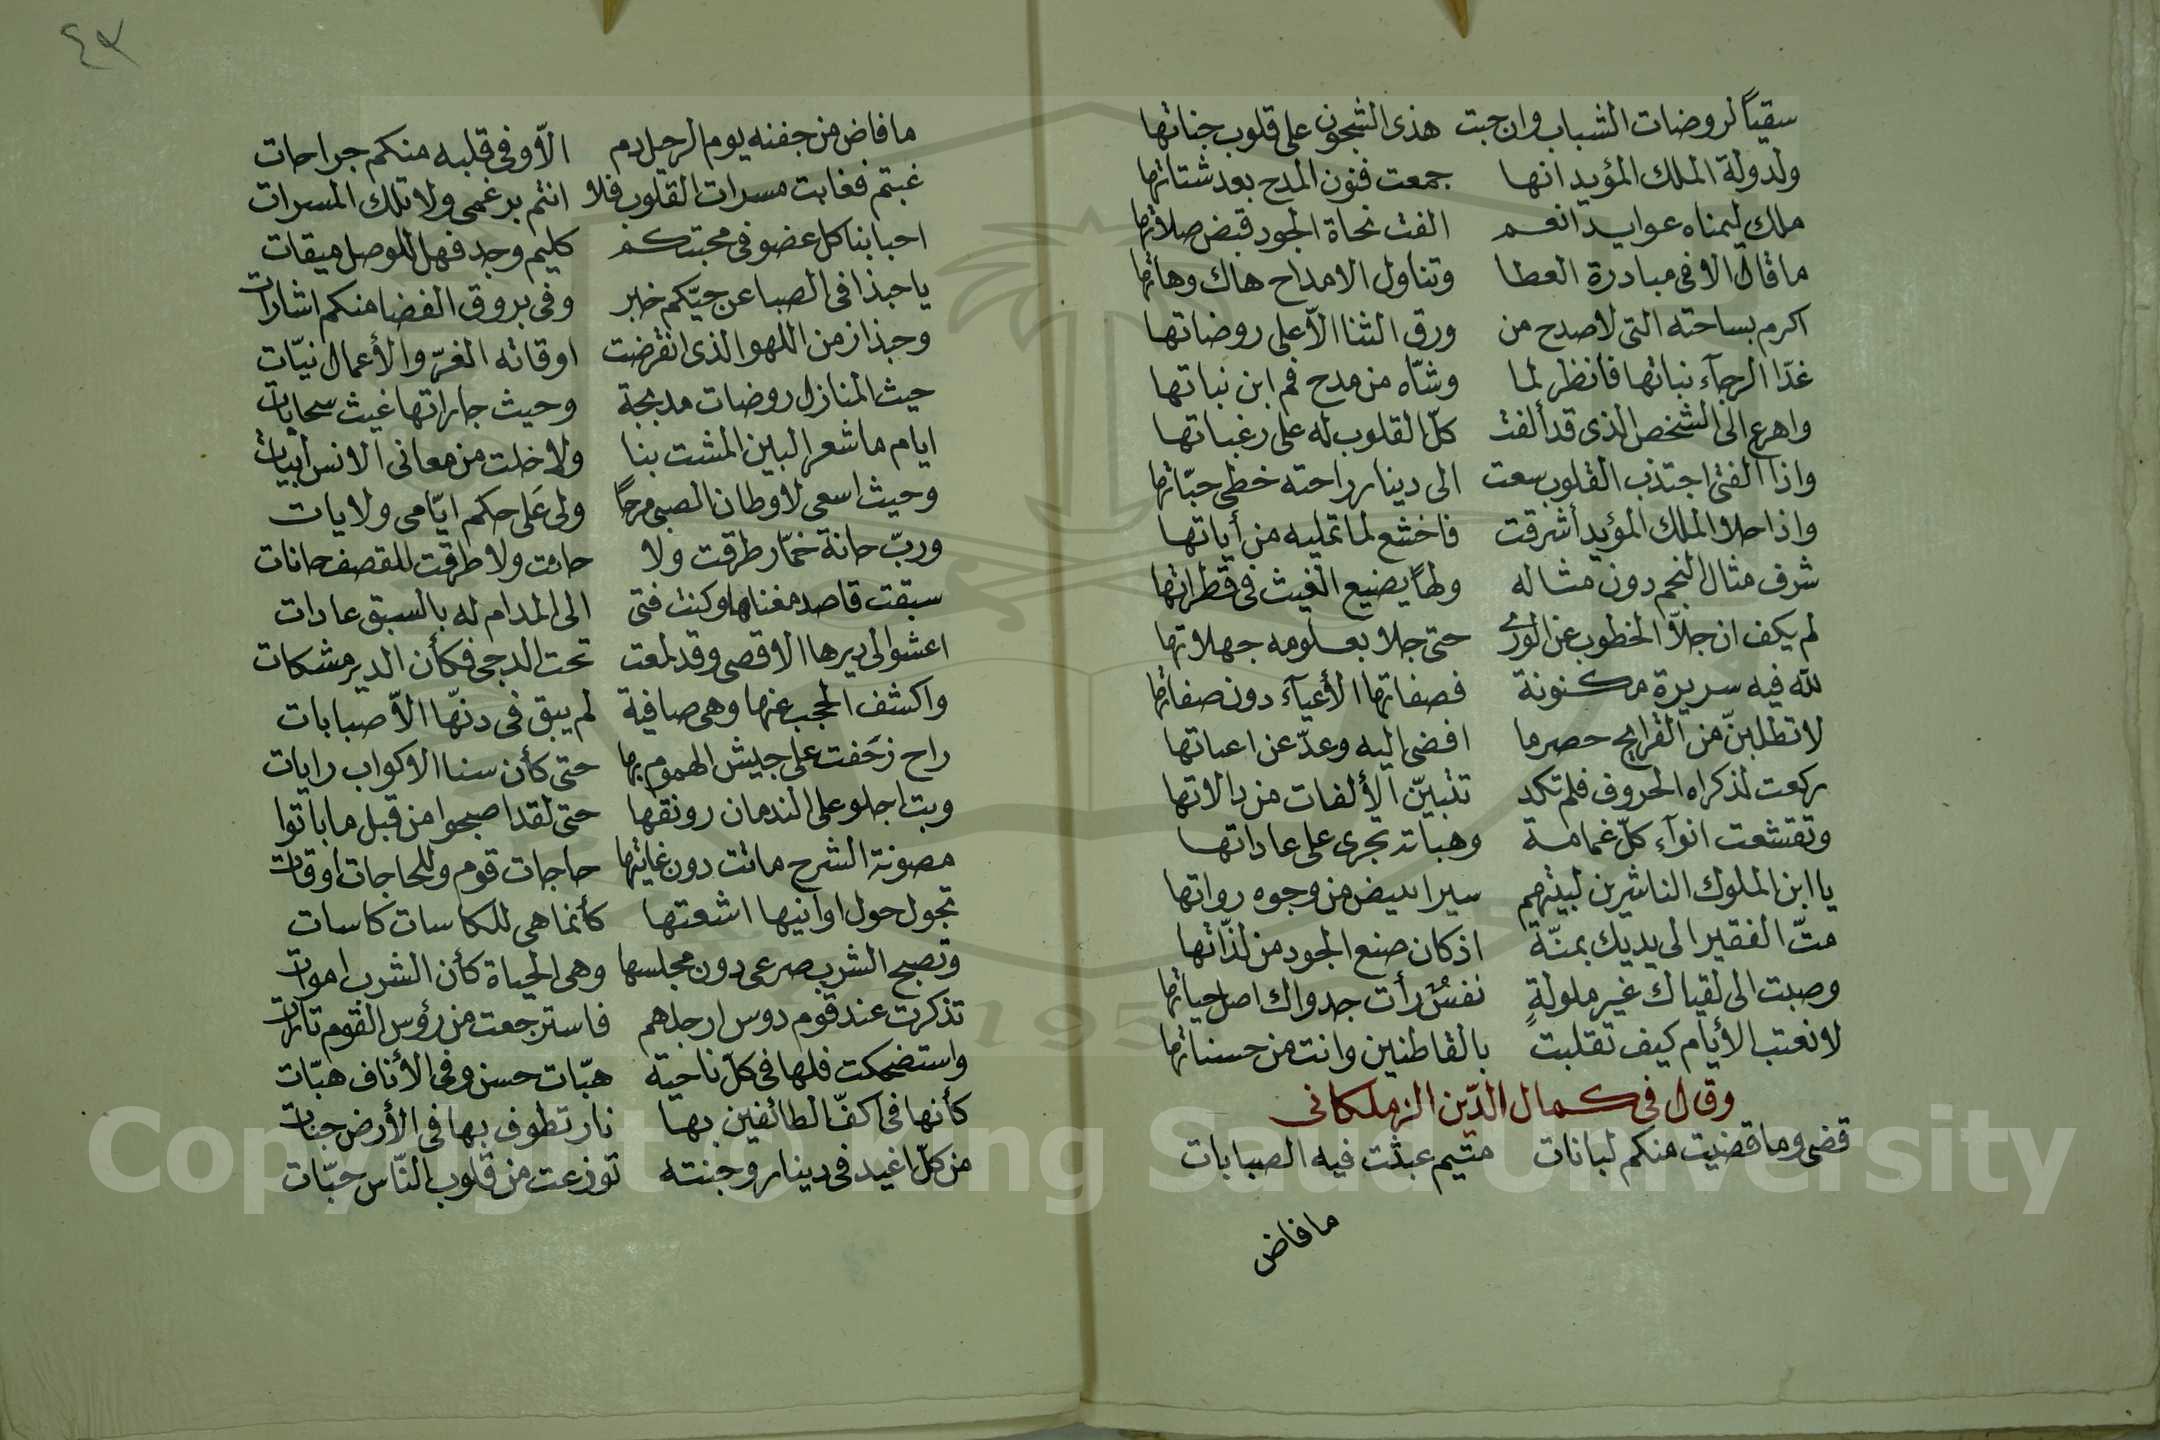 سقيًا لروضات الشباب وان جبت هذى الشجون على قلوب جناتها
ولدولة الملك المؤيد انها جمعت فنون المدح بعد شتاتها
ملك ليمناه عوايد انعم الفت نحاة الجود قبض صلاتها
ما قال الا فى مبادرة العطا وتناول الامداح هاك وهاتها
اكرم بساحته التى لا صدح من ورق الثنا الّا على روضاتها
غذّا الرجآء نباتها فانظر لما وشّاه من مدح فم ابن نباتها
واهرع الى الشخص الذى قد ألفت كلّ القلوب له على رغباتها
واذا الفتى اجتذب القلوب سعت الى دينار راحته خطى حبّاتها
واذا حلا الملك المؤيد أشرقت فاخشع لما تمليه من أياتها
شرف مثال النجم دون مثاله ولهًا يضيع الغيث فى قطراتها
لم يكف ان جلّا الخطوب عن الورى حتى جلا بعلومه جهلاتها
لله فيه سريرة مكنونة فصفاتها الأعيآء دون صفاتها
لا تطلبنّ من القرايح حصر ما افضى اليه وعدّ عن اعناتها
ركعت لذكراه الحروف فلم تكد تتبيّن الألفات من دالاتها
وتقشعت انوآء كلّ غمامة وهباته تجرى على عاداتها
يا ابن الملوك الناشرين لبيتهم سيرا تبيض من وجوه رواتها
متّ الفقير الى يديك بمنّة اذ كان صنع الجود من لذّاتها
وصبت الى لقياك غير ملولةٍ نفسٌ رأت جدواك اصل حياتها
لا نعتب الأيام كيف تقلبت بالقاطنين وانت من حسناتها
وقال فى كمال الدّين الزملكانى
قضى وما قضيت منكم لبانات متيم عبثت فيه الصبابات
ما فاض
٤٣
ما فاض من جفنه يوم الرحيل دم الّا وفى قلبه منكم جراحات
غبتم فغابت مسرات القلوب فلا انتم برغمى ولا تلك المسرات
احبابنا كل عضو فى محبتكم كليم وجد فهل للوصل ميقات
يا حبذا فى الصبا عن حيّكم خبر وفى بروق الفضا منكم اشارات
وحبذا زمن اللهو الذى انقرضت اوقاته الغرّ والأعمال نيّات
حيث المنازل روضات مدبجة وحيث جاراتها غيث سحابات
ايام ما شعر البين المشت بنا ولا خلت من معانى الانس أبيات
وحيث اسعى لاوطان الصبى مرحًا ولى عَلى حكم ايّامى ولايات
وربّ حانة خمّار طرقت ولا حانت ولا طرقت للقصف حانات
سبقت قاصد مغناها وكنت فتى الى المدام له بالسبق عادات
اعشو الى ديرها الاقصى وقد لمعت تحت الدجى فكأن الدير مشكات
واكشف الحجب عنها وهى صافية لم يبق فى دنّها الّا صبابات
راح زَحَفت على جيش الهموم بها حتى كأن سنا الاكواب رايات
وبت اجلو على الندمان رونقها حتى لقد اصبحوا من قبل ما باتوا
مصونة السرح ماتت دون غايتها حاجات قوم وللحاجات اوقات
تجول حول اوانيها اشعتها كأنما هى للكاسات كاسات
وتصبح الشرب صرعى دون مجلسها وهى الحياة كأن الشرب اموات
تذكرت عند قوم دوس ارجلهم فاسترجعت من رؤس القوم تارات
واستضحكت فلها فى كل ناحية هبّات حسن وفى الأناف هبّات
كأنها فى اكفّ الطائفين بها نار تطوف بها فى الأرض جنات
من كلّ اغيد فى دينار وجنته توزعت من قلوب النّاس حبّات
Copyright © King Saud University
195